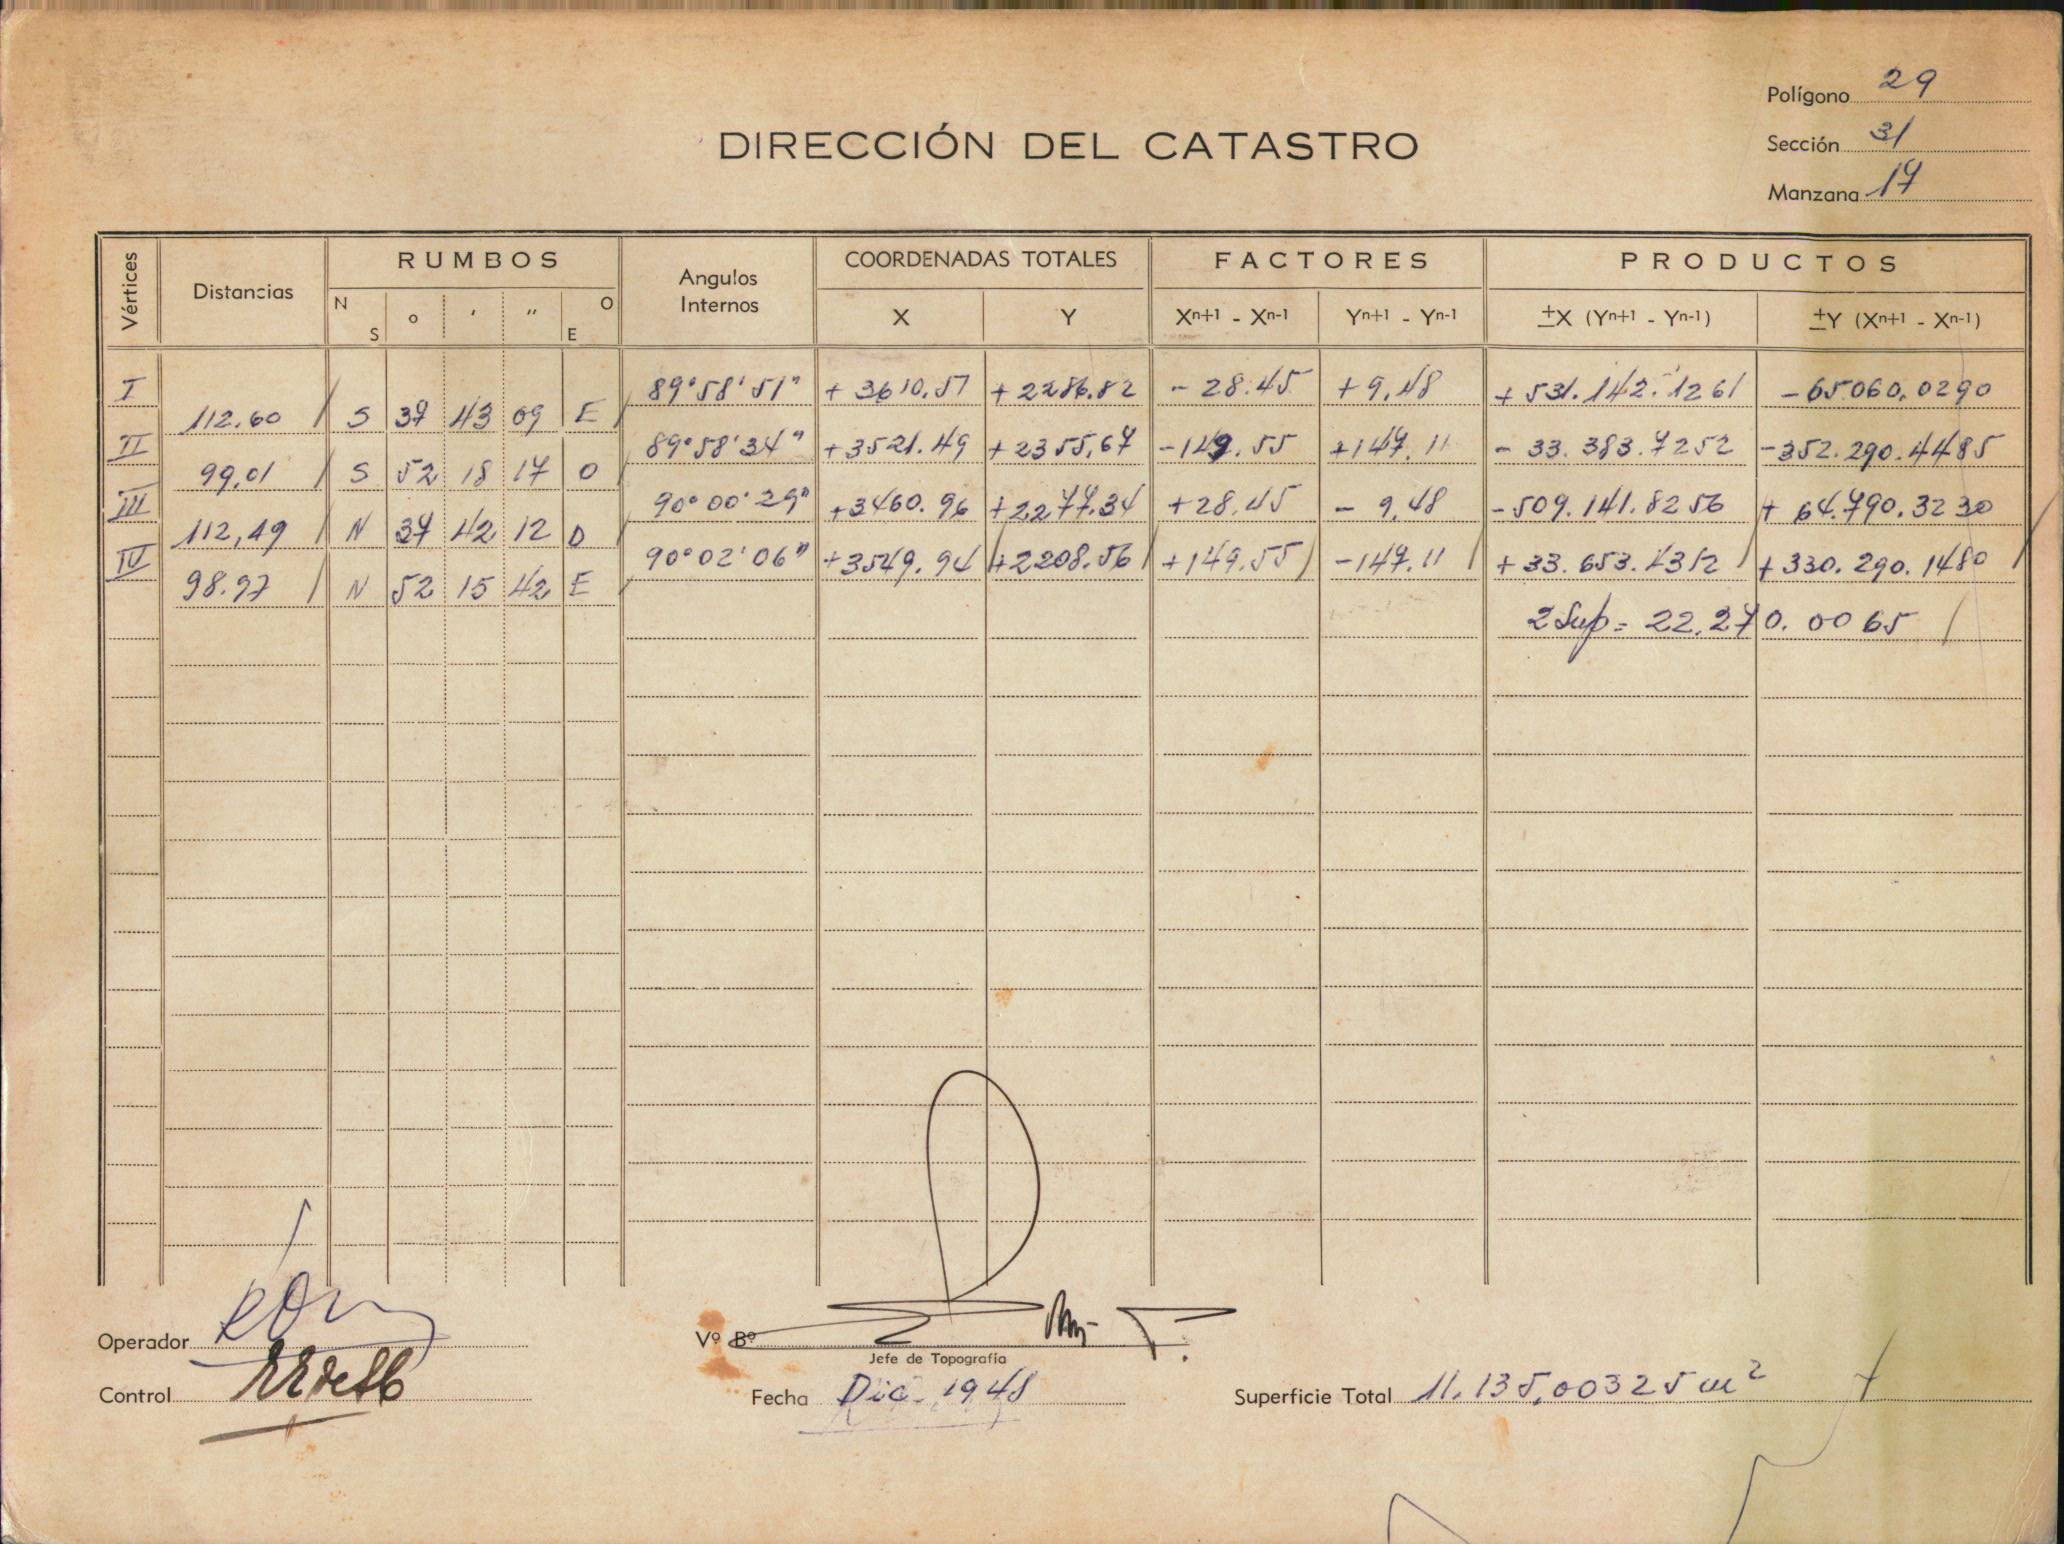 Polígono 29
DIRECCIÓN DEL CATASTRO
Sección 31
Manzana 17
Vértices Distancias RUMBOS Angulos Internos COORDENADAS TOTALES FACTORES PRODUCTOS
N S ° ' " O E X Y Xn+1 - Xn-1 Yn+1 - Yn-1 ±X (Yn+1 - Yn-1) ±Y (Xn+1 - Xn-1)
I 89°58'51" +3610.51 +2286.82 -28.45 +9,48 +531.142.1261 -65060,0290
112.60 S 37 43 09 E
II 89°58'34" +3521.49 +2355,67 -149.55 +147.11 -33.383.7252 -352.290.4485
99,01 S 52 18 17 O
III 90°00'29" +3460.96 +2277,34 +28,45 -9,48 -509.141.8256 +64.790.3230
112,49 N 37 42 12 O
IV 90°02'06" +3549.94 +2208.56 +149.55 -147.11 +33.653.4312 +330.290.1480
98.97 N 52 15 42 E
2 Sup = 22.270.0065
Operador
Vº Bº
Jefe de Topografía
Control
Fecha Dic. 1948
Superficie Total 11.135,00325 m²